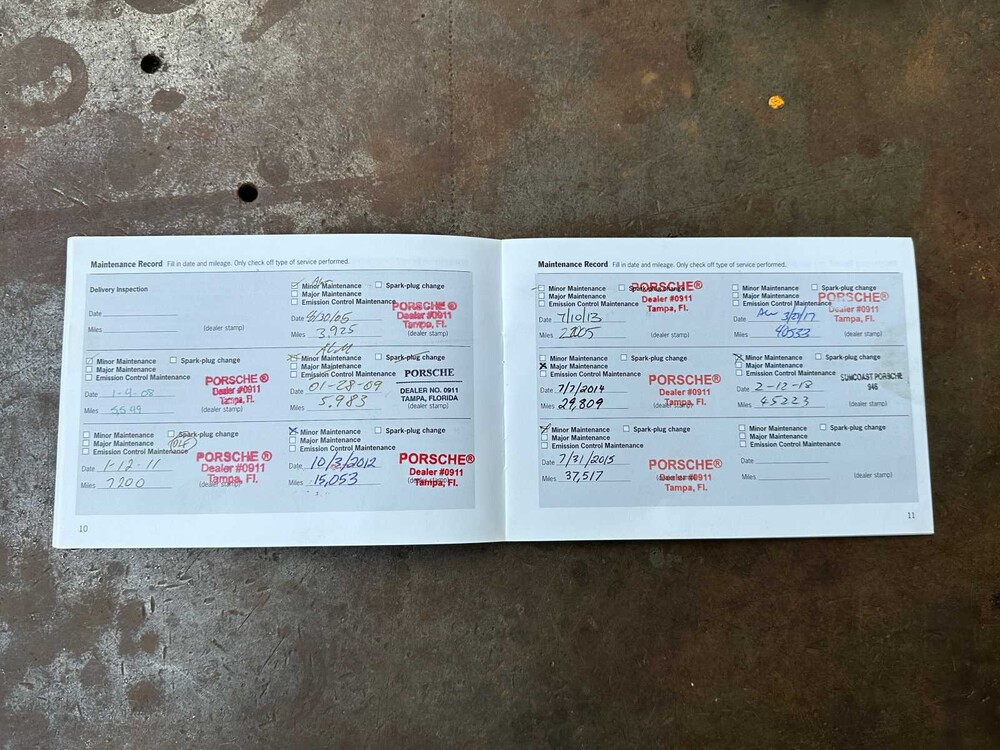 Maintenance Record Fill in date and mileage. Only check off type of service performed.
Delivery Inspection
Date
Miles (dealer stamp)
Minor Maintenance Spark-plug change
Major Maintenance
Emission Control Maintenance
PORSCHE®
Dealer #0911
Tampa, Fl.
Date 8/30/05
Miles 3925 (dealer stamp)
Minor Maintenance Spark-plug change
Major Maintenance
Emission Control Maintenance
PORSCHE®
Dealer #0911
Tampa, Fl.
Date 1-4-08
Miles 5549 (dealer stamp)
Minor Maintenance Spark-plug change
Major Maintenance
Emission Control Maintenance
PORSCHE
DEALER NO. 0911
TAMPA, FLORIDA
Date 01-28-09
Miles 5,983 (dealer stamp)
Minor Maintenance Spark-plug change
Major Maintenance
Emission Control Maintenance
PORSCHE®
Dealer #0911
Tampa, Fl.
Date 1-12-11
Miles 7200 (dealer stamp)
Minor Maintenance Spark-plug change
Major Maintenance
Emission Control Maintenance
PORSCHE®
Dealer #0911
Tampa, Fl.
Date 10/3/2012
Miles 15,053
10
Maintenance Record Fill in date and mileage. Only check off type of service performed.
Minor Maintenance Spark-plug change
Major Maintenance
Emission Control Maintenance
PORSCHE®
Dealer #0911
Tampa, Fl.
Date 7/10/13
Miles (dealer stamp)
Minor Maintenance Spark-plug change
Major Maintenance
Emission Control Maintenance
PORSCHE®
Dealer #0911
Tampa, Fl.
Date
Miles 40533 (dealer stamp)
Minor Maintenance Spark-plug change
Major Maintenance
Emission Control Maintenance
PORSCHE®
Dealer #0911
Tampa, Fl.
Date 7/7/2014
Miles 29,809
Minor Maintenance Spark-plug change
Major Maintenance
Emission Control Maintenance
SUNCOAST PORSCHE
946
Date 2-12-18
Miles 45223 (dealer stamp)
Minor Maintenance Spark-plug change
Major Maintenance
Emission Control Maintenance
PORSCHE®
Dealer #0911
Tampa, Fl.
Date 7/31/2015
Miles 37,517
Minor Maintenance Spark-plug change
Major Maintenance
Emission Control Maintenance
Date
Miles (dealer stamp)
11